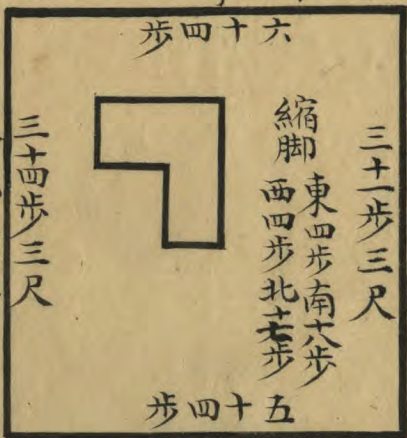 六十四步
三十一步三尺
縮脚
東四步南十八步
西四步北十七步
三十四步三尺
五十四步